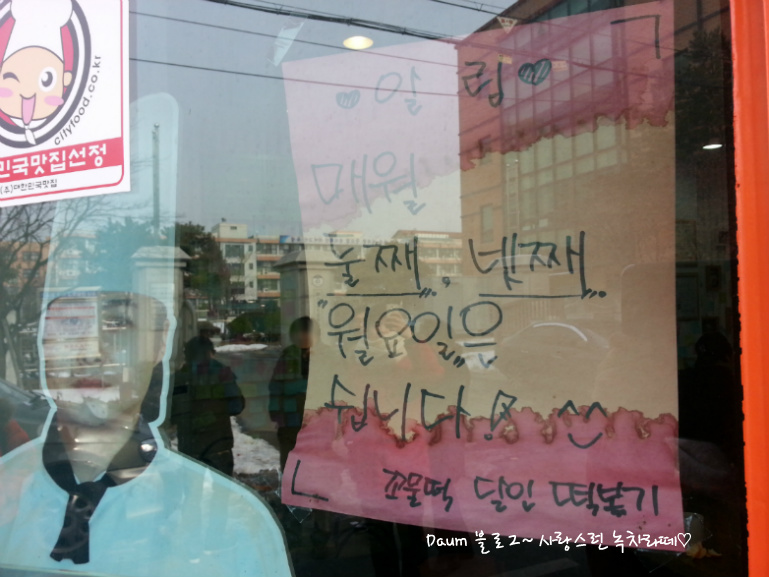 cityfood.co.kr
민국맛집선정
(주)대한민국맛집
♥알림♥
매월
둘째, 넷째
"월요일"은
쉽니다! ^^
꼬물떡 달인 떡볶기
Daum 블로그~ 사랑스런 녹차라떼♡